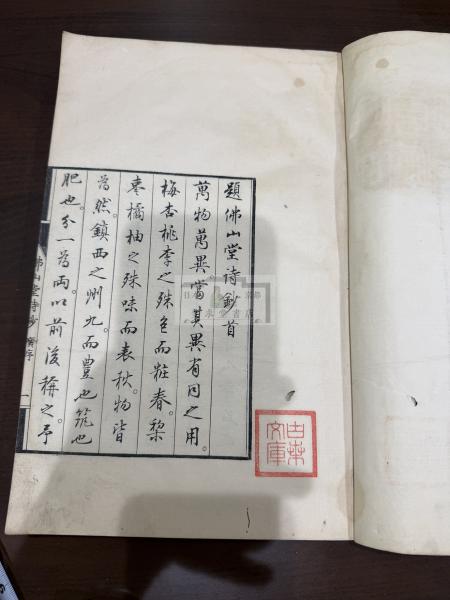 題佛山堂詩鈔首
萬物萬異當其異有同之用。
梅杏桃李之殊色而粧春。梨
棗橘柚之殊味而表秋。物皆
為然。鎮西之州九。而豊也筑也
肥也分一為兩。以前後稱之。予
佛山堂詩鈔 序
一
古葉文庫